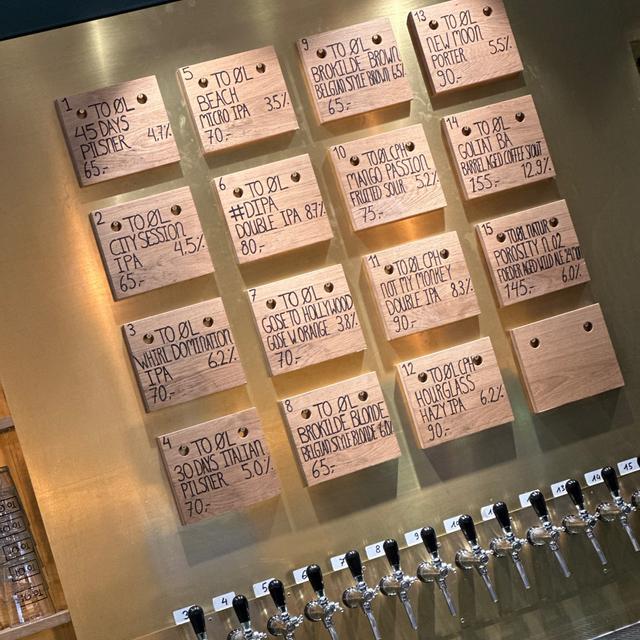 1
TO ØL
45 DAYS
PILSNER 4.7%
65.-
2
TO ØL
CITY SESSION
IPA 4.5%
65.-
3
TO ØL
WHIRL DOMINATION
IPA 6.2%
70.-
4
TO ØL
30 DAYS ITALIAN
PILSNER 5.0%
70.-
5
TO ØL
BEACH
MICRO IPA 3.5%
70.-
6
TO ØL
#DIPA
DOUBLE IPA 8.7%
80.-
7
TO ØL
GOSE TO HOLLYWOOD
GOSE W. ORANGE 3.8%
70.-
8
TO ØL
BROKILDE BLONDE
BELGIAN STYLE BLONDE
65.-
9
TO ØL
BROKILDE BROWN
BELGIAN STYLE BROWN
65.-
10
TO ØL CPH
MANGO PASSION
FRUITED SOUR 5.2%
75.-
11
TO ØL CPH
NOT MY MONKEY
DOUBLE IPA 8.3%
90.-
12
TO ØL CPH
HOURGLASS
HAZY IPA 6.2%
90.-
13
TO ØL
NEW MOON
PORTER 5.5%
90.-
14
TO ØL
GOLIAT BA
BARREL AGED COFFEE STOUT
155.- 12.9%
15
TO ØL NATUR
POROSITY N.02
FOEDER AGED WILD ALE
145.- 6.0%
3 4 5 6 7 8 9 10 11 13 14 15